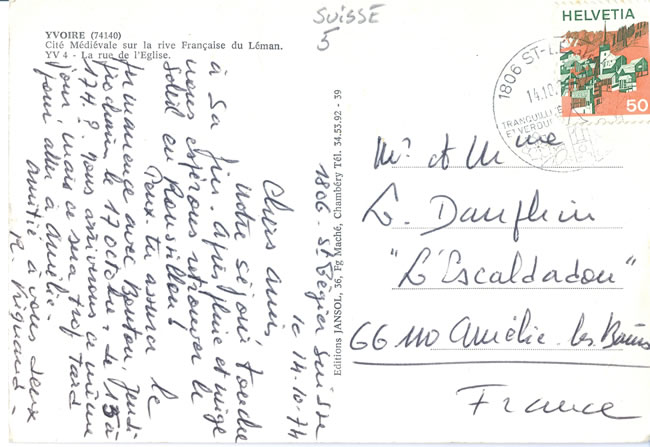 YVOIRE (74140)
Cité Médiévale sur la rive Française du Léman.
YV 4 - La rue de l'Eglise.
SUISSE
5
HELVETIA
50
1806 ST-L
14.10.
TRANQUILLITÉ
ET VERDU
Editions JANSOL, 36, Fg Maché, Chambéry Tél. 34.53.92 - 39
1806 - St Légier Suisse
le 14-10-74
Chers amis,
Notre séjour touche
à sa fin. Après pluie et neige
nous espérons retrouver le
soleil en Roussillon!
Peux-tu assurer le
permanence avec Bouton, Jeudi
prochain le 17 octobre, de 15 à
17 H.? Nous arriverons ce même
jour mais ce sera trop tard
pour aller à Amélie.
Amitié à vous deux
R.
Mr et Mme
L. Dauphin
"L'Escaldadou"
66110 Amélie les Bains
France